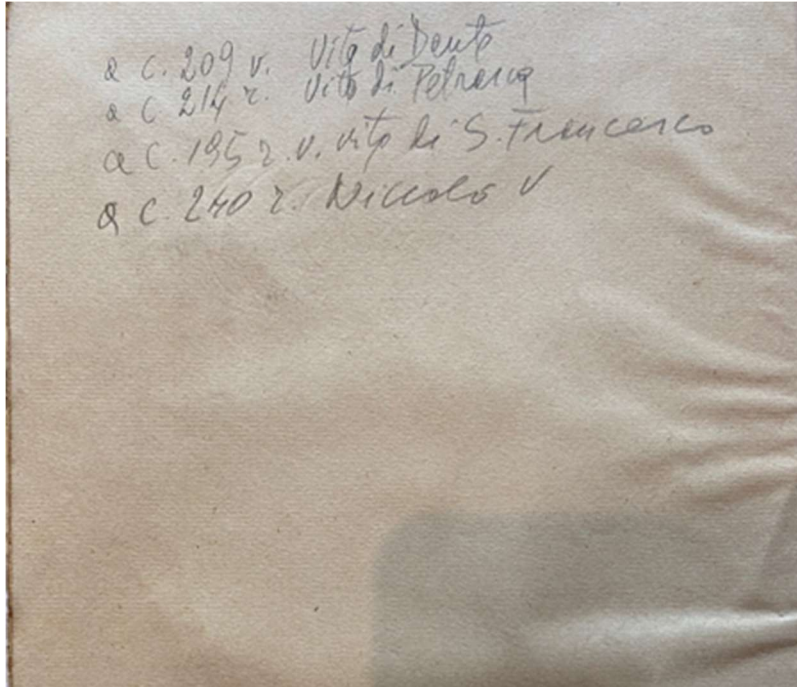 a c. 209 v. Vita di Dante
a c. 214 r. Vita di Petrarca
a c. 195 r. v. vita di S. Francesco
a c. 240 r. Niccolò V